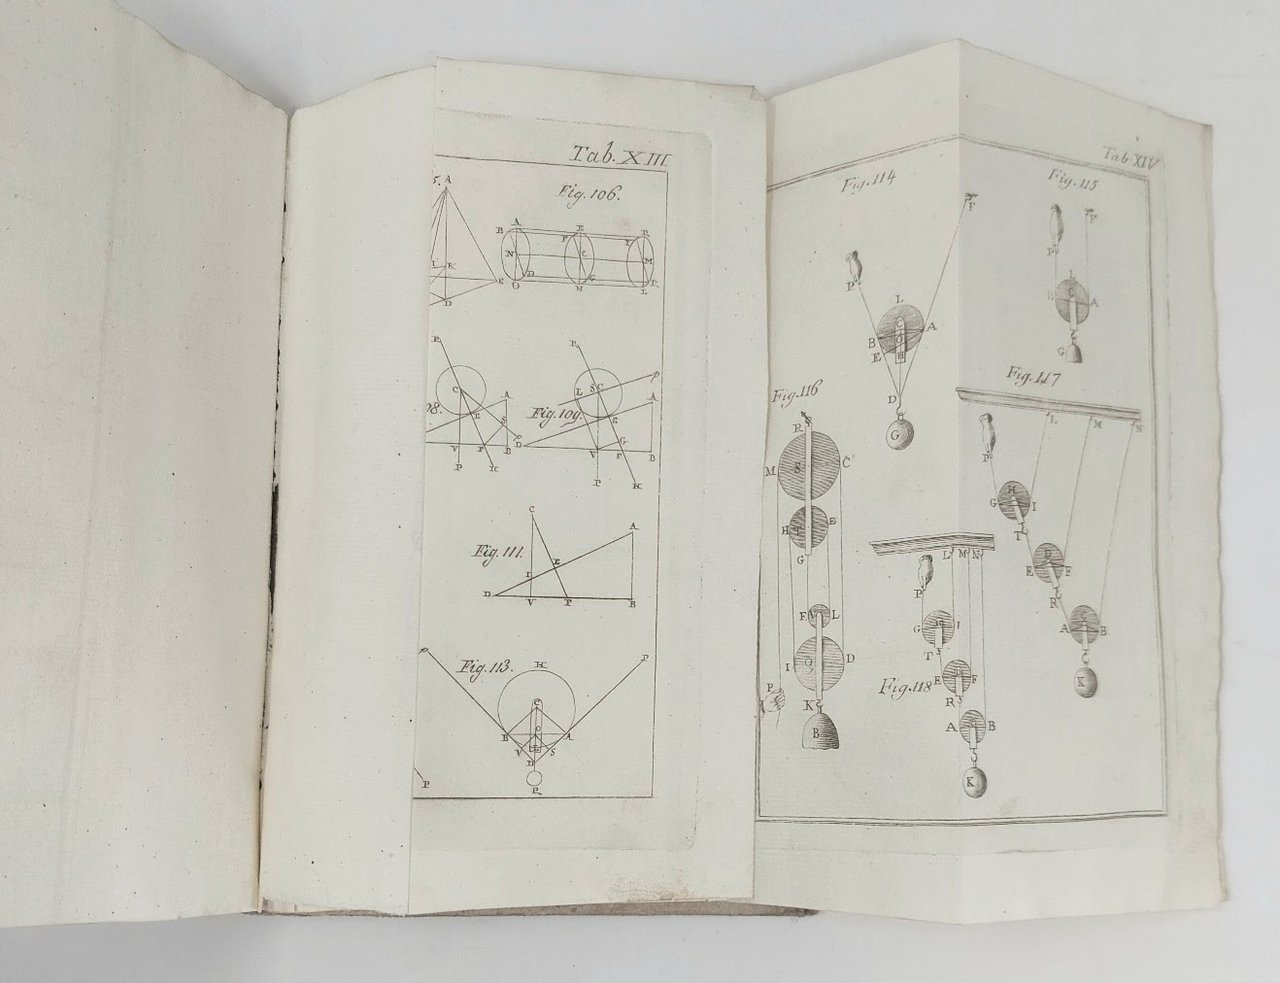 Tab. XIII
5.
A
K
E
D
Fig. 106.
A
B
E
F
N
C
M
D
G
O
H
L
P
C
A
E
S
D
V
F
B
P
H
Fig. 109.
P
P
L
S
C
A
E
G
V
F
B
P
H
Fig. 111.
C
A
E
I
D
V
F
B
Fig. 113.
P
H
P
C
B
O
A
V
S
D
P
Tab. XIV
Fig. 114
F
P
L
C
A
B
O
E
H
D
G
Fig. 115
F
P
L
C
A
G
Fig. 116
R
M
S
C
H
E
G
F
L
I
Q
D
P
K
B
Fig. 117
L
M
N
P
H
G
I
T
D
E
F
R
C
A
B
K
L
M
N
P
G
H
I
T
Fig. 118
E
D
F
R
A
C
B
K